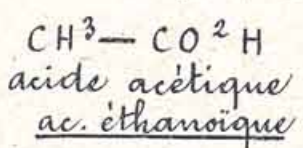 CH³— CO²H
acide acétique
ac. éthanoïque